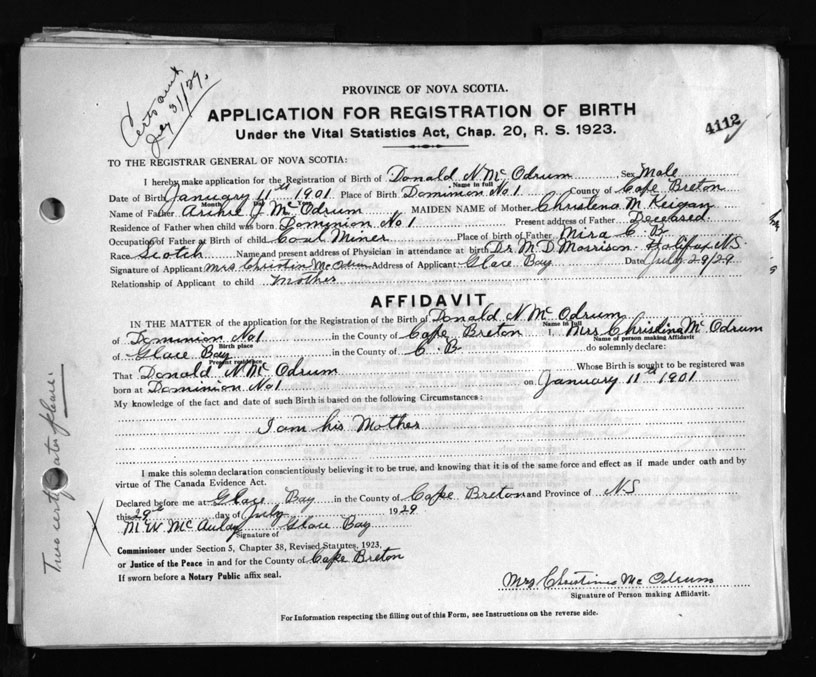 Cert sent
July 31/29.
PROVINCE OF NOVA SCOTIA.
APPLICATION FOR REGISTRATION OF BIRTH
Under the Vital Statistics Act, Chap. 20, R. S. 1923.
4112
TO THE REGISTRAR GENERAL OF NOVA SCOTIA:
I hereby make application for the Registration of Birth of Donald N Mc Odrum Sex Male
Name in full
Date of Birth January 11th 1901 Place of Birth Dominion No 1 County of Cape Breton
Month
Name of Father Archie J Mc Odrum MAIDEN NAME of Mother Christena M Keigan
Residence of Father when child was born Dominion No 1 Present address of Father Deceased
Occupation of Father at Birth of child Coal Miner Place of birth of Father Mira C B
Race Scotch Name and present address of Physician in attendance at birth Dr M D Morrison - Halifax NS
Signature of Applicant Mrs Christin Mc Odrum Address of Applicant Glace Bay Date July 29/29
Relationship of Applicant to child Mother
AFFIDAVIT
IN THE MATTER of the application for the Registration of the Birth of Donald N Mc Odrum
Name in full
of Dominion No 1 in the County of Cape Breton I, Mrs Christina Mc Odrum
Birth place
Name of person making Affidavit
of Glace Bay in the County of C B do solemnly declare:
Present residence
That Donald N Mc Odrum Whose Birth is sought to be registered was
born at Dominion No 1 on January 11th 1901
My knowledge of the fact and date of such Birth is based on the following Circumstances:
I am his Mother
I make this solemn declaration conscientiously believing it to be true, and knowing that it is of the same force and effect as if made under oath and by
virtue of The Canada Evidence Act.
Declared before me at Glace Bay in the County of Cape Breton and Province of NS
this 29th day of July 1929
M. W. Mc Aulay Glace Bay
Signature of
Commissioner under Section 5, Chapter 38, Revised Statutes, 1923,
or Justice of the Peace in and for the County of Cape Breton
If sworn before a Notary Public affix seal.
Mrs Christina Mc Odrum
Signature of Person making Affidavit.
For Information respecting the filling out of this Form, see Instructions on the reverse side.
Two certificates please.
X